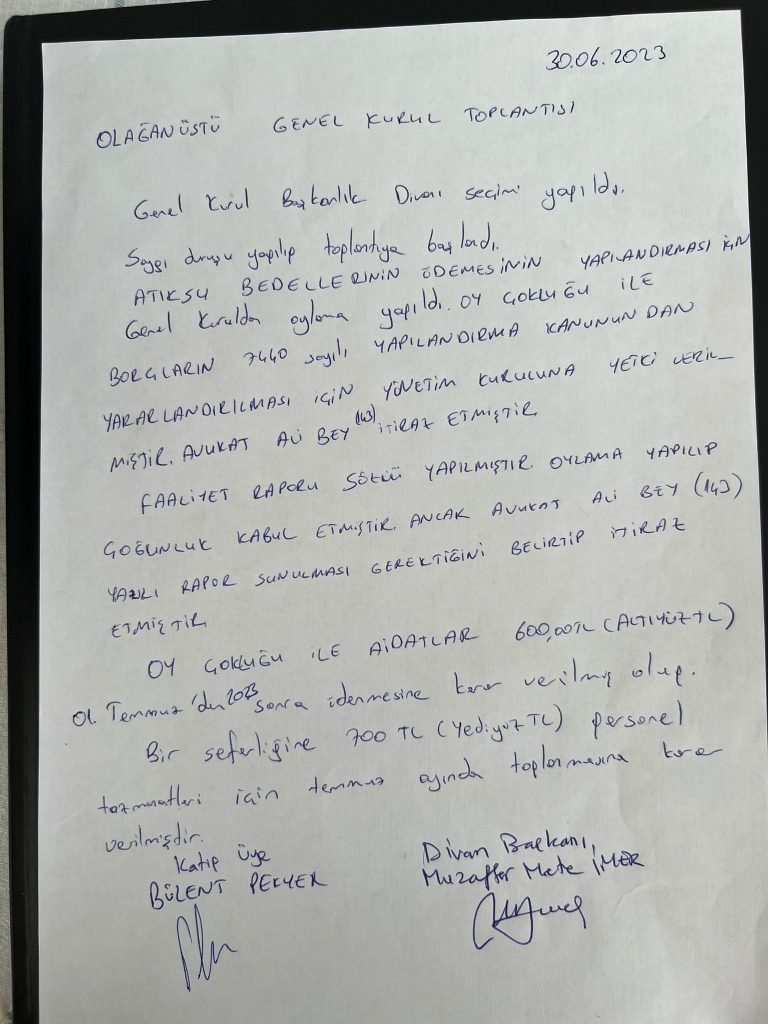 30.06.2023
OLAĞANÜSTÜ GENEL KURUL TOPLANTISI
Genel Kurul Başkanlık Divanı seçimi yapıldı.
Saygı duruşu yapılıp toplantıya başlandı.
ATIKSU BEDELLERİNİN ÖDEMESİNİN YAPILANDIRMASI İÇİN
Genel Kurulda oylama yapıldı. OY ÇOKLUĞU İLE
BORÇLARIN 7440 sayılı YAPILANDIRMA KANUNUNDAN
YARARLANDIRILMASI İÇİN YÖNETİM KURULUNA YETKİ VERİL-
MİŞTİR. AVUKAT ALİ BEY (143) İTİRAZ ETMİŞTİR.
FAALİYET RAPORU SÖZLÜ YAPILMIŞTIR. OYLAMA YAPILIP
ÇOĞUNLUK KABUL ETMİŞTİR. ANCAK AVUKAT ALİ BEY (143)
YAZILI RAPOR SUNULMASI GEREKTİĞİNİ BELİRTİP İTİRAZ
ETMİŞTİR.
OY ÇOKLUĞU İLE AİDATLAR 600,00TL (ALTIYÜZ TL)
01. Temmuz'dan 2023 sonra ödenmesine karar verilmiş olup.
Bir seferliğine 700 TL (Yediyüz TL) personel
tazminatleri için temmuz ayında toplanmasına karar
verilmiştir.
Katip Üye
BÜLENT PEKYER
Divan Başkanı,
Muzaffer Mete İMER